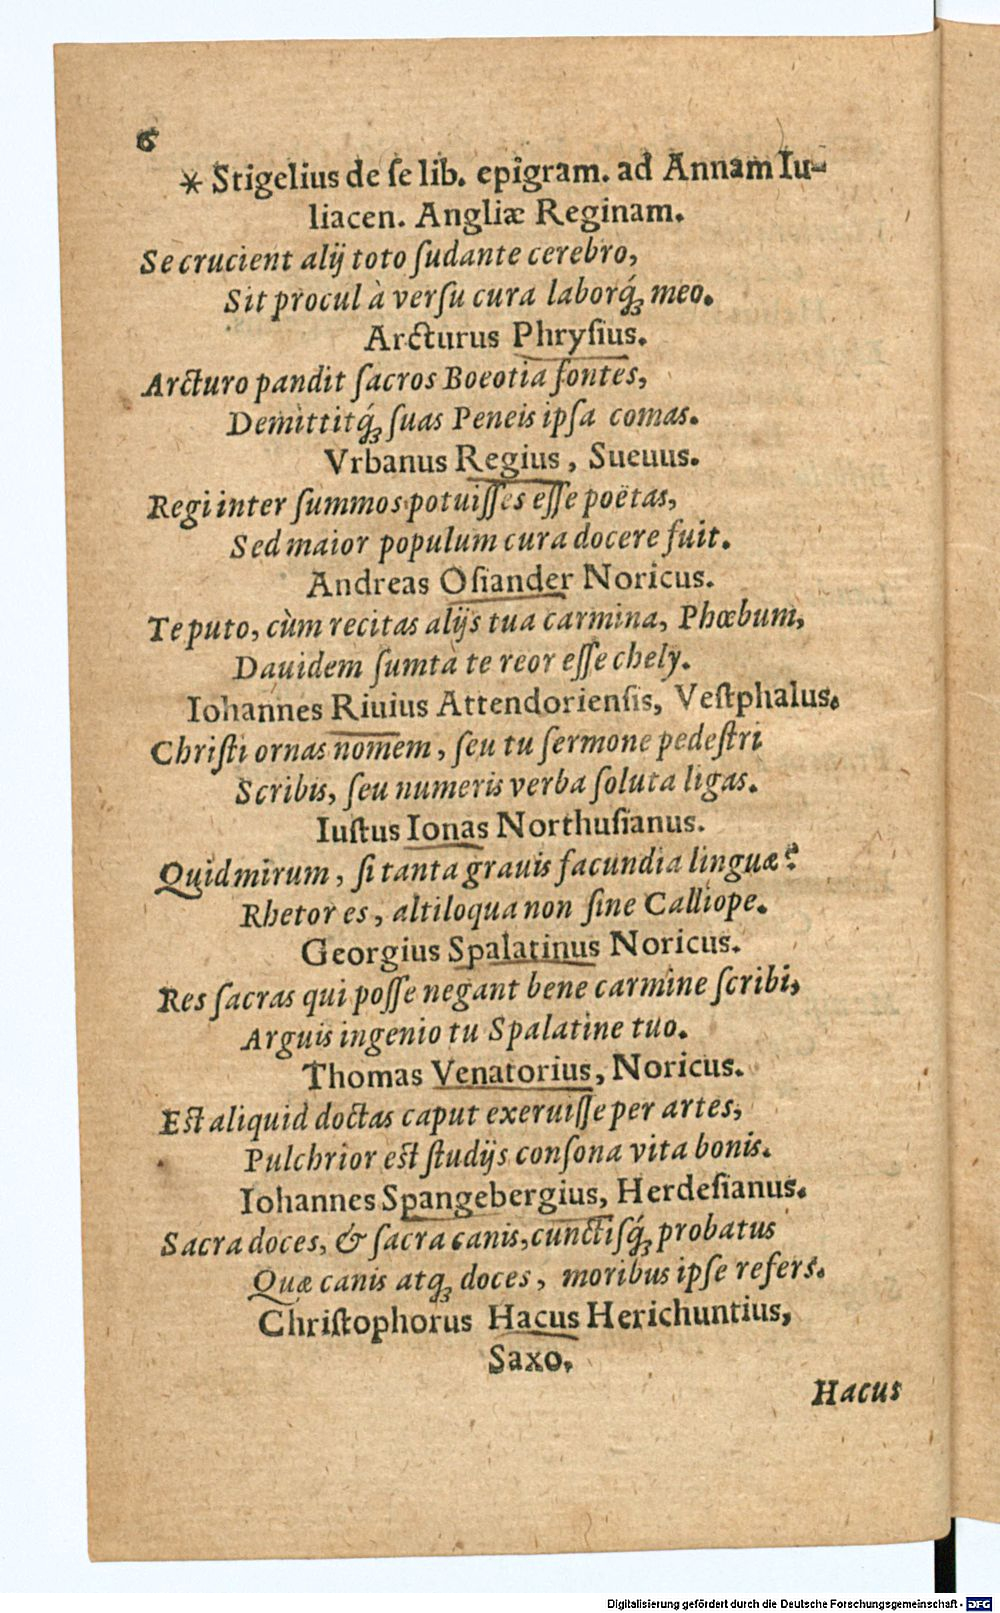 6
* Stigelius de ſe lib. epigram. ad Annam Iu-
liacen. Angliæ Reginam.
Se crucient alij toto ſudante cerebro,
Sit procul à verſu cura laborq́; meo.
Arcturus Phryſius.
Arcturo pandit ſacros Boeotia fontes,
Demittitq́; ſuas Peneis ipſa comas.
Vrbanus Regius, Sueuus.
Regi inter ſummos potuiſſes eſſe poëtas,
Sed maior populum cura docere fuit.
Andreas Oſiander Noricus.
Te puto, cùm recitas alijs tua carmina, Phœbum,
Dauidem ſumta te reor eſſe chely.
Iohannes Riuius Attendorienſis, Veſtphalus.
Chriſti ornas nomem, ſeu tu ſermone pedeſtri
Scribis, ſeu numeris verba ſoluta ligas.
Iuſtus Ionas Northuſianus.
Quid mirum, ſi tanta grauis facundia linguæ?
Rhetor es, altiloqua non ſine Calliope.
Georgius Spalatinus Noricus.
Res ſacras qui poſſe negant bene carmine ſcribi,
Arguis ingenio tu Spalatine tuo.
Thomas Venatorius, Noricus.
Eſt aliquid doctas caput exeruiſſe per artes,
Pulchrior eſt ſtudijs conſona vita bonis.
Iohannes Spangebergius, Herdeſianus.
Sacra doces, & ſacra canis, cunctiſq́; probatus
Quæ canis atq; doces, moribus ipſe refers.
Chriſtophorus Hacus Herichuntius,
Saxo.
Hacus
Digitalisierung gefördert durch die Deutsche Forschungsgemeinschaft - DFG